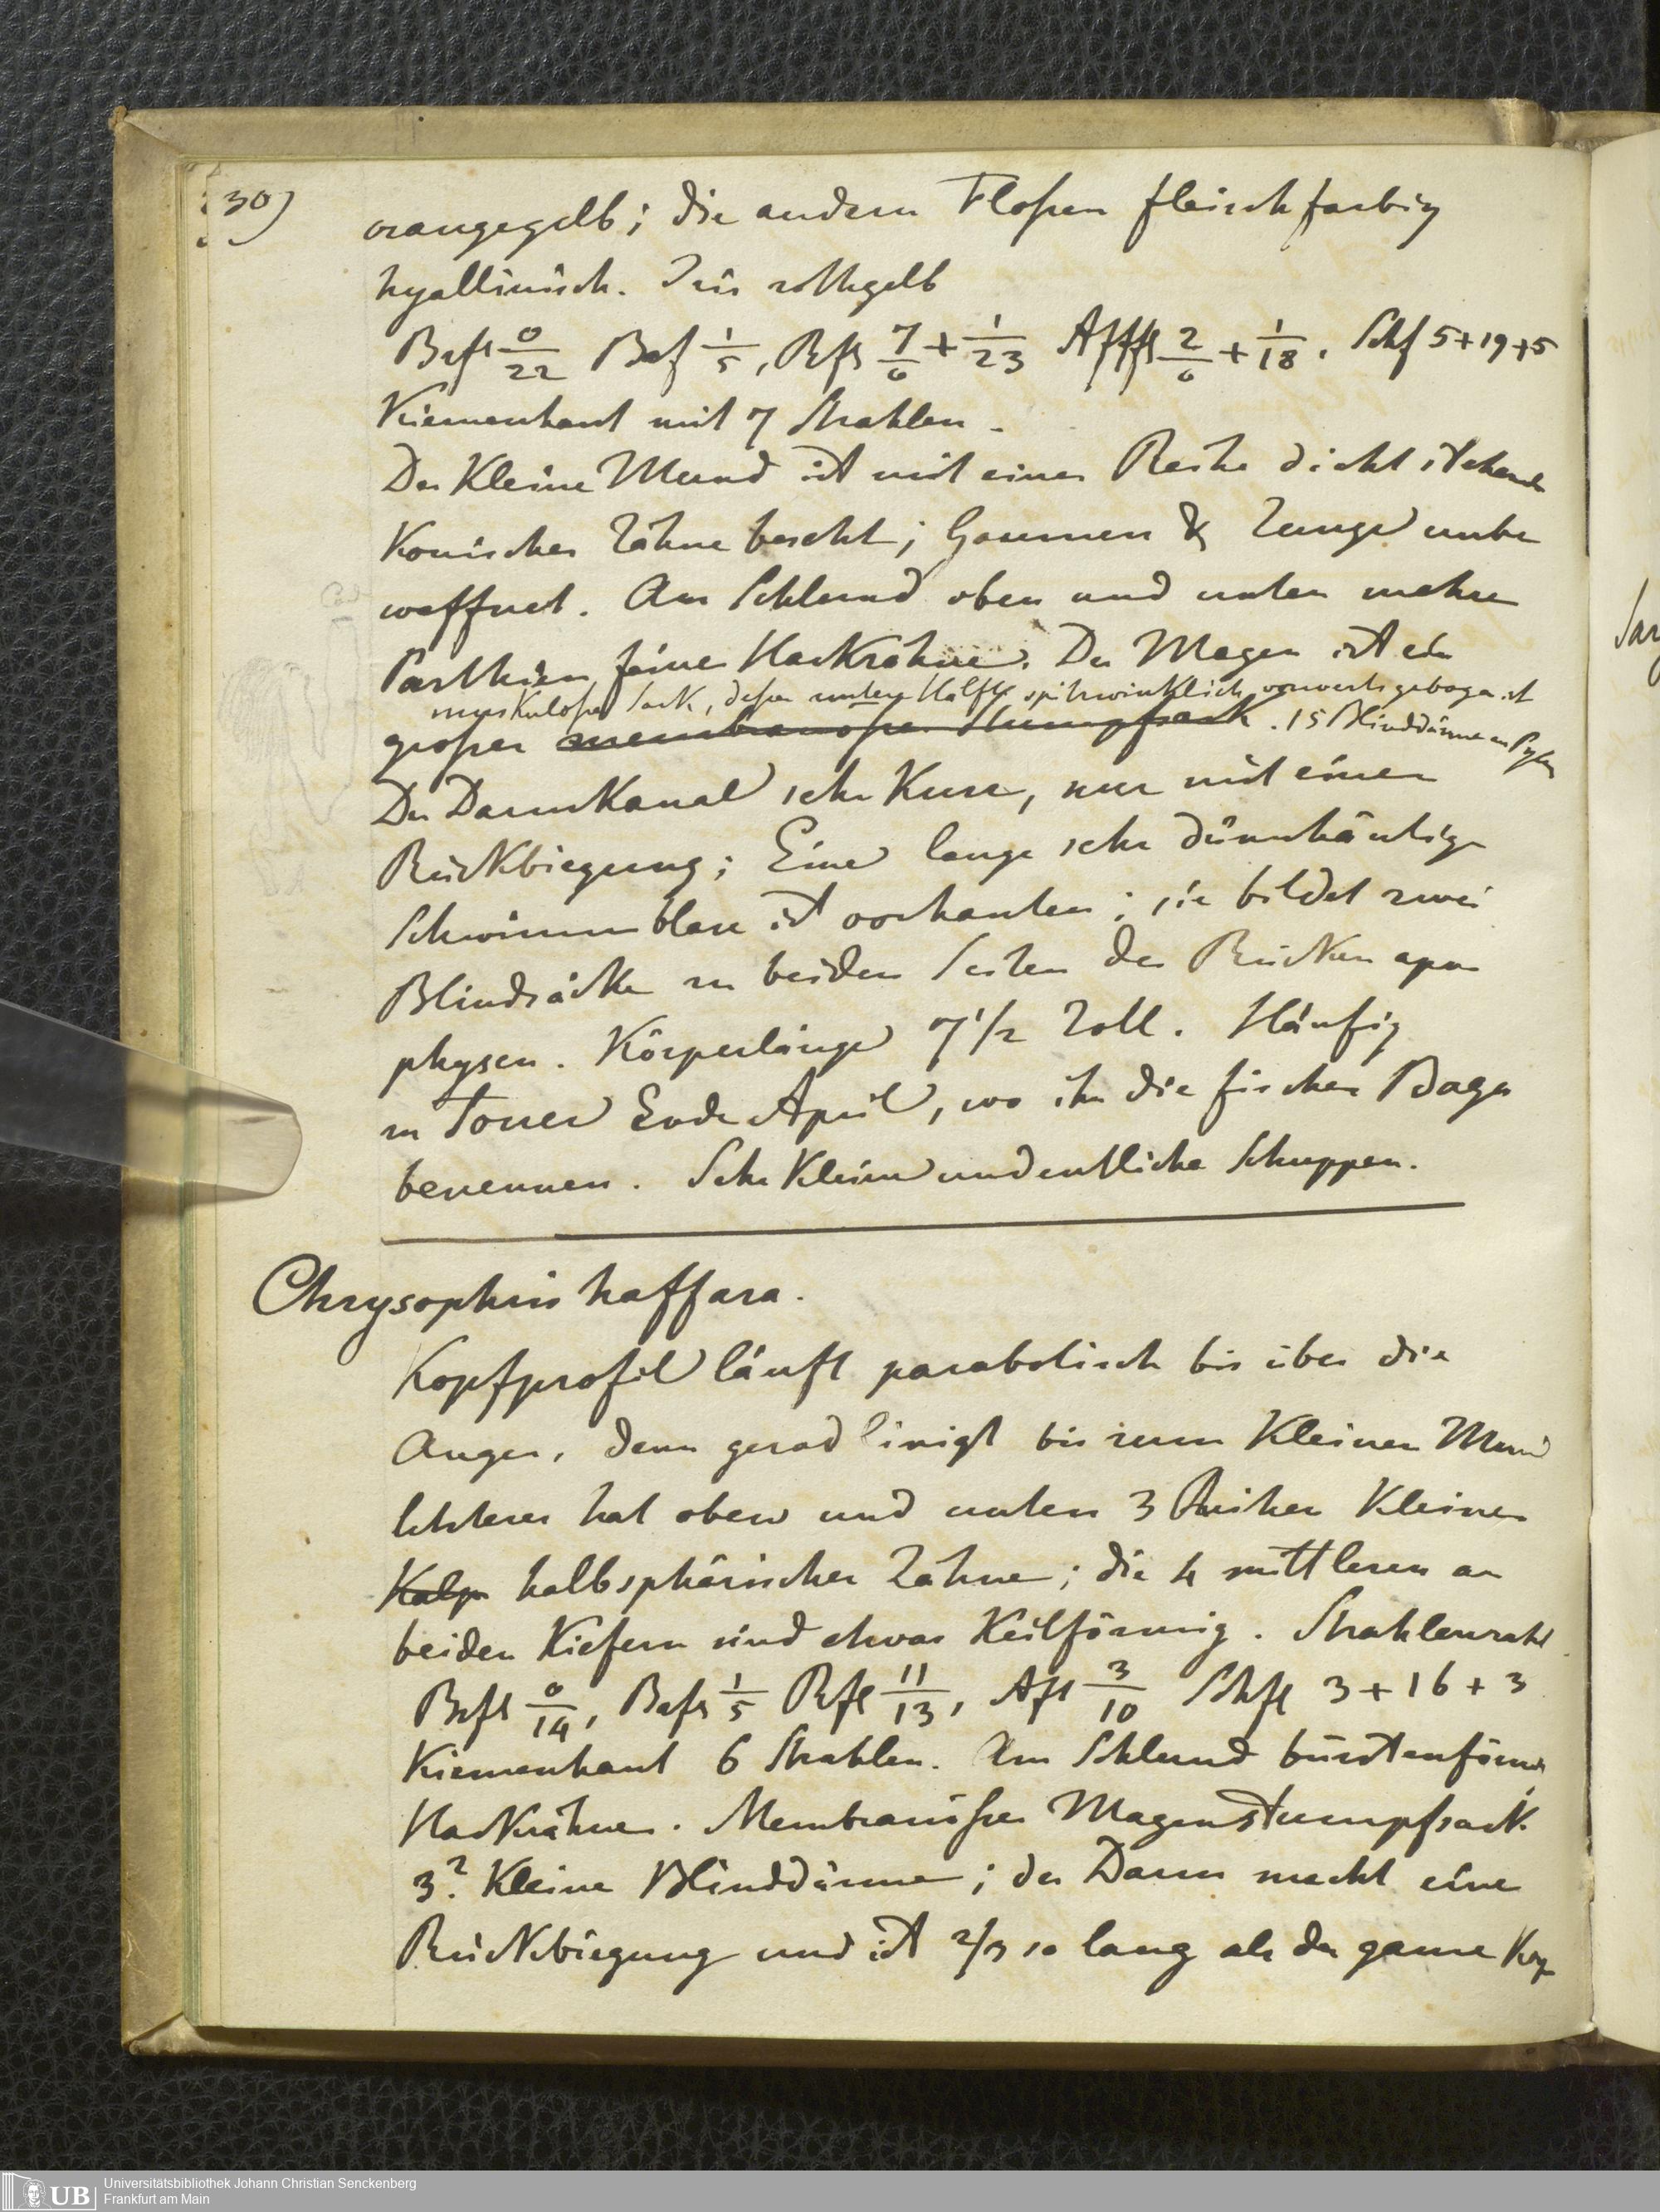 30)
orangegelb; die andern Floßen fleischfarbig
hyallinisch. Iris rothgelb
Brfl 0/22 Baf 1/5, Rfl 7/0 + 1/23 Affl 2/0 + 1/18. Schf 5+19+5
Kiemenhaut mit 7 Strahlen.
Der Kleine Mund ist mit einer Reihe dicht stehende
Konischer Zähne besetzt; Gaumen & Zunge unbe
waffnet. Am Schlund oben und unten mehre
Parthien feiner Hackzähne. Der Magen ist ein
muskuloser Sack, deßen untere Hälfte spitzwinklich vorwerts gebogen ist
großer membranoser Stumpfsack. 15 Blinddärme am Pylor
Der Darmkanal sehr Kurz, nur mit einer
Rückbiegung; Eine lange sehr dünnhäutige
Schwimmblase ist vorhanten; sie bildet zwei
Blindsäcke zu beiden Seiten der Rücken apo
physen. Körperlänge 7 1/2 Zoll. Häufig
in Torre Ende April, wo ihn die fischer Baga
benennen. Sehr Kleine undeutliche Schuppen.
Chrysophris haffara.
Kopfprofil läuft parabolisch bis über die
Augen, dann geradlinigt bis zum Kleinen Mund
letzterer hat oben und unten 3 Reihen Kleiner
halbsphärischer Zähne; die 4 mittleren an
beiden Kiefern sind etwas Keilförmig. Strahlenzahl
Brfl 0/14, Bafl 1/5 Rfl 11/13, Afl 3/10 Schfl 3+16+3
Kiemenhaut 6 Strahlen. Am Schlund bürstenförmi
Hackzähne. Membranöser Magenstumpfsack
3? Kleine Blinddärme; der Darm macht eine
Rückbiegung und ist 2/3 so lang als der ganze Kör
Universitätsbibliothek Johann Christian Senckenberg
Frankfurt am Main
UB